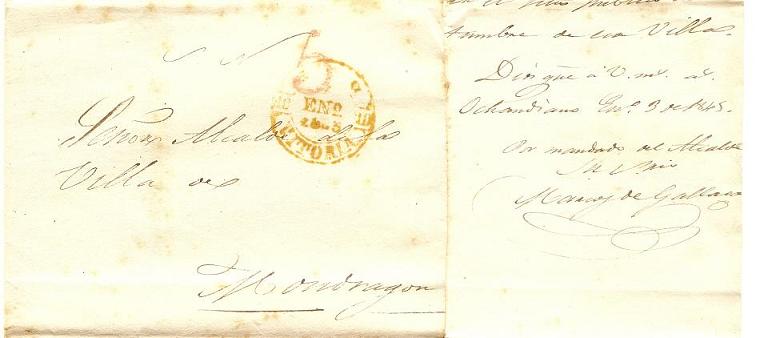 S N
5
ENO.
1845
VITORIA
Señor Alcalde de la
Villa de
Mondragon
en el
tumbre de esa Villa.
Dios gue á V. ms. as.
Ochandiano Eno. 3 de 1845.
Por mandado del Alcalde
Su
Marcos de Gallano